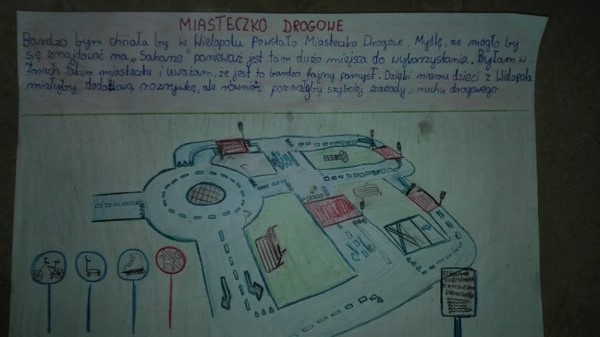 MIASTECZKO DROGOWE
Bardzo bym chciała by w Wielopolu powstało Miasteczko Drogowe. Myślę, że mogło by
się znajdować na „Saharze" ponieważ jest tam dużo miejsca do wykorzystania. Byłam w
Żorach takim miasteczku i uważam, że jest to bardzo fajny pomysł. Dzięki niemu dzieci z Wielopola
miałyby dodatkową rozrywkę, ale również poznałyby szybciej zasady ruchu drogowego